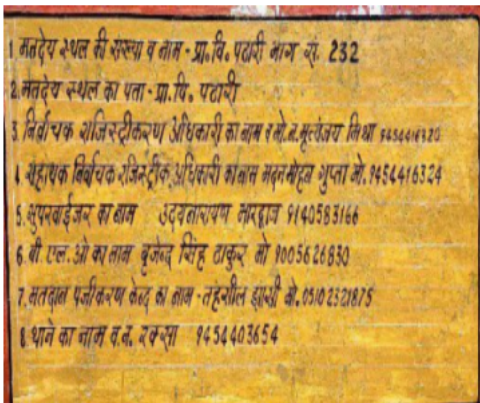 1. मतदेय स्थल की संख्या व नाम - प्रा.वि. पठारी भाग सं. 232
2. मतदेय स्थल का पता - प्रा.वि. पठारी
3 निर्वाचक रजिस्ट्रीकरण अधिकारी का नाम व मो.न. मृत्युंजय मिश्रा 9454416320
4 सहायक निर्वाचक रजिस्ट्रीक. अधिकारी का नाम मदनमोहन गुप्ता मो. 9454416324
5. सुपरवाईजर का नाम उदयनारायण भारद्वाज 9140583166
6. बी.एल.ओ का नाम बृजेन्द्र सिंह ठाकुर मो 9005626830
7. मतदान पंजीकरण केन्द्र का नाम - तहसील झांसी मो. 05102321875
8. थाने का नाम व.न. रक्सा 9454403654